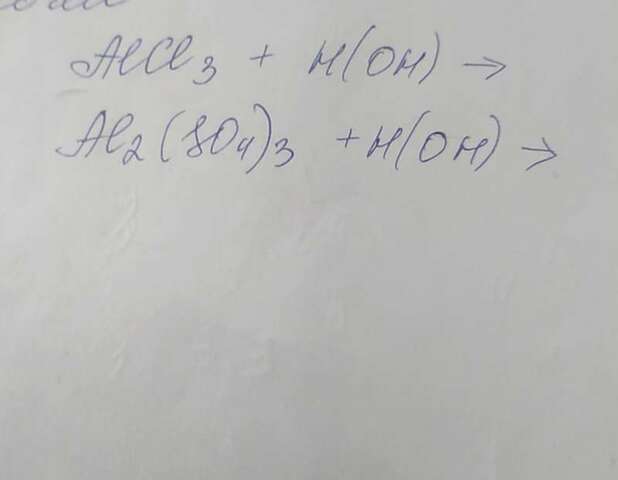 AlCl3 + H(OH) →
Al2(SO4)3 + H(OH) →